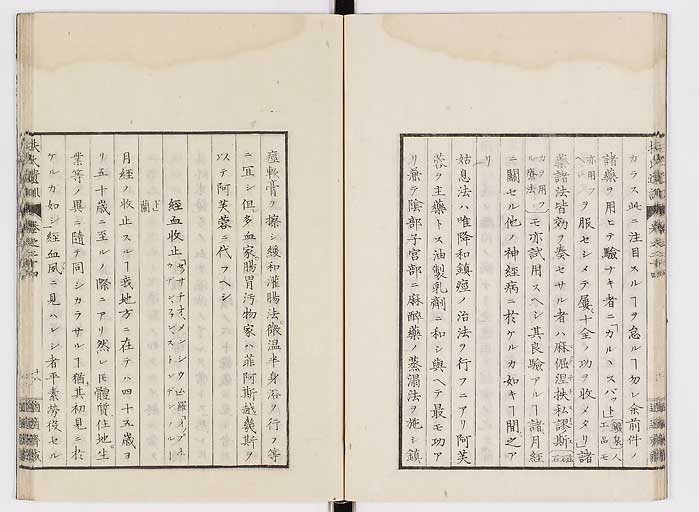 カラス此ニ注目スルヿヲ怠ルヿ勿レ余前件ノ
諸藥ヲ用ヒテ驗ナキ者ニ「カルヽスバット」鑛泉人工品モ
亦用フヘシヲ服セシメテ屢十全ノ功ヲ收メタリ諸
藥諸法皆効ヲ奏セサル者ハ麻倔涅扶私謬斯
モ亦試用スヘシ其良驗アルヿ諸月經
ニ關セル他ノ神經病ニ於ケルカ如キヿ間之ア
リ
姑息法ハ唯降和鎮痙ノ治法ヲ行フニアリ阿芙
蓉ヲ主藥トス油製乳劑ニ和シ與ヘテ最モ功ア
リ兼テ陰部子宮部ニ麻醉藥ノ蒸溻法ヲ施シ鎮
痙軟膏ヲ擦シ緩和灌腸法微温半身浴ヲ行フ等
ニ宜シ但多血家腸胃汚物家ハ菲阿斯越幾斯ヲ
以テ阿芙蓉ニ代フヘシ
經血收止
蘭
月經ノ收止スルヿ我地方ニ在テハ四十五歳ヨ
リ五十歳ニ至ルノ際ニアリ然レ𪜈體質住地生
業等ノ異ニ隨テ同シカラサルヿ猶其初見ニ於
ケルカ如シ經血風ニ見ハレシ者平素勞役セル
扶氏遺訓